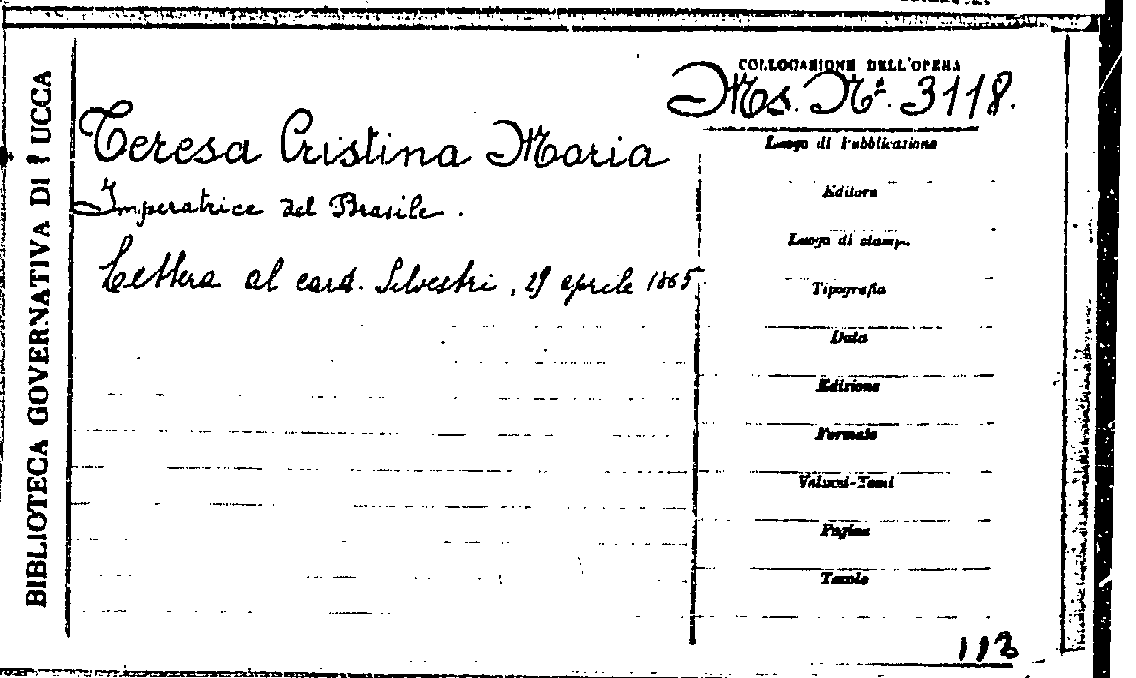 BIBLIOTECA GOVERNATIVA DI LUCCA
COLLOCAZIONE DELL'OPERA
Ms. Nº. 3118.
Teresa Cristina Maria
Imperatrice del Brasile.
Lettera al card. Silvestri, 29 aprile 1865
Luogo di Pubblicazione
Editore
Luogo di stampa
Tipografia
Data
Edizione
Formato
Volumi-Tomi
Pagine
Tavole
113